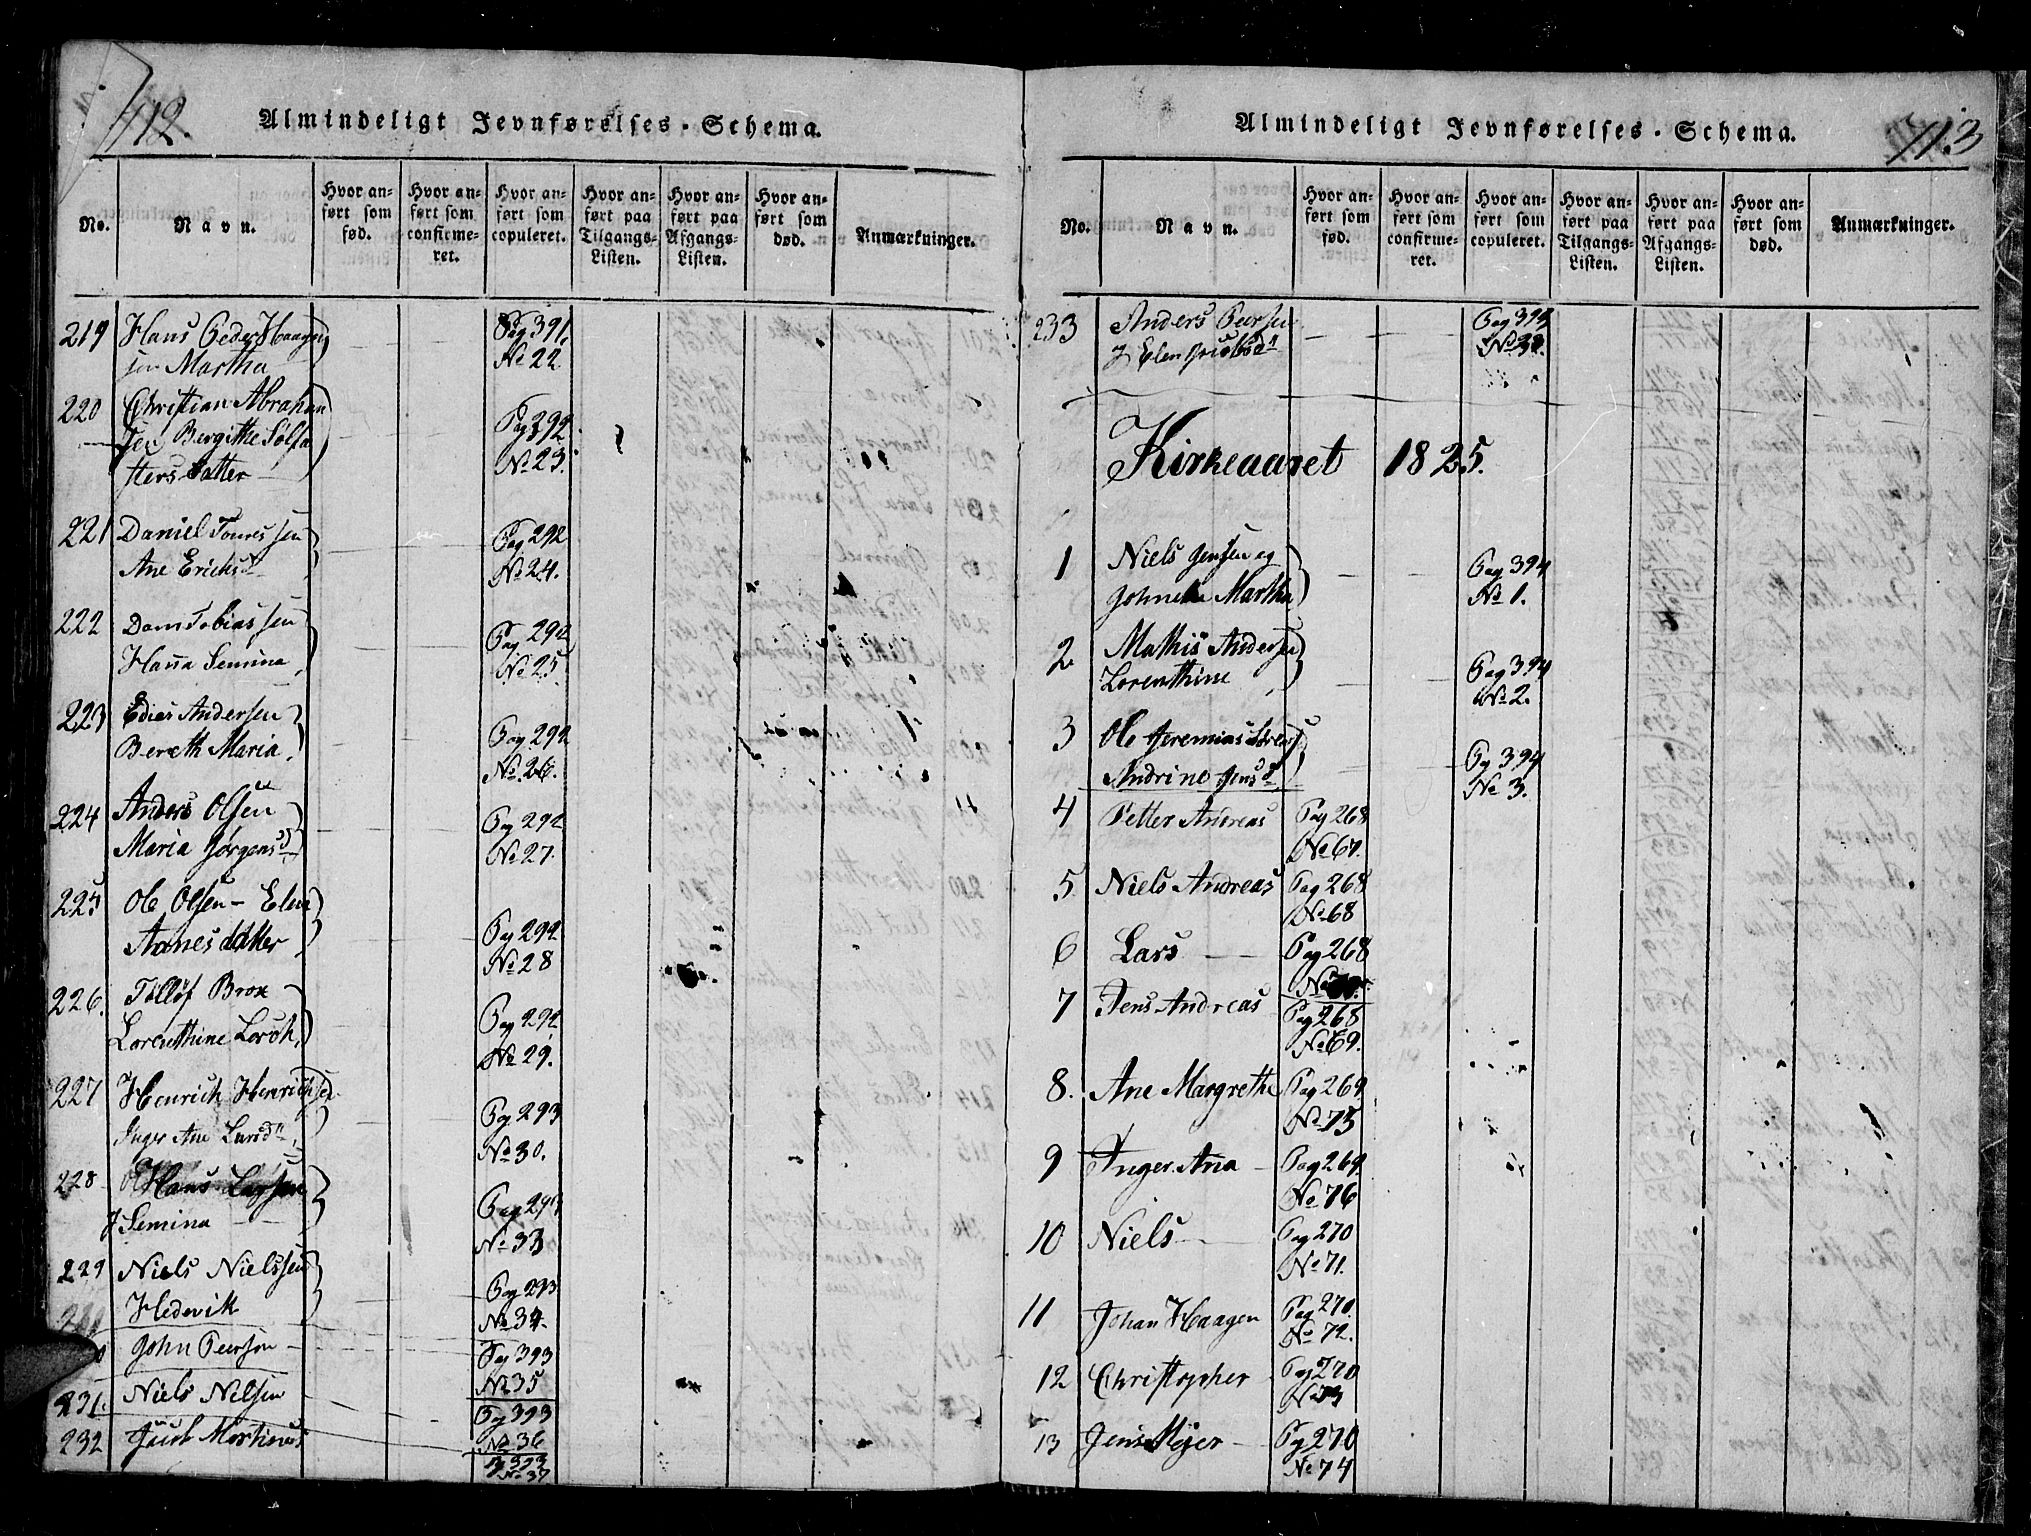 712.
Almindeligt Jevnførelses-Schema.
No. Navn. Hvor anført som fød. Hvor anført som confirmeret. Hvor anført som copuleret. Hvor anført paa Tilgangs-Listen. Hvor anført paa Afgangs-Listen. Hvor anført som død. Anmærkninger.
219 Hans Peder Haagen Pag 391,
sen Martha No 22
220 Christian Abraham Pag 392
sen Bergithe No 23.
datter
221 Daniel Toures sen Pag 292
Ane Erichsd No 24.
222 Dam Tobias sen Pag 292
Hanna Semina No 25
223 Edies Andersen Pag 292
Bereth Maria, No 26.
224 Anders Olsen Pag 292
Maria Jørgensd No 27.
225 Ole Olsen - Elen Pag 292
Aanesdatter No 28
226. Tølløf Brox Pag 292
Lorenthine Lorch, No 29.
227 Henrich Henrichsen Pag 293
Inger Ane Larsd No 30.
228 Hans Larsen Pag 293
Semina No 33
229 Niels Nielssen Pag 293
Hedevik No 34.
John Peersen Pag 393
No 35
231. Niels Nelsen Pag 393
No 36
232 Jacob Martinus Pag 393
No 37
713
Almindeligt Jevnførelses-Schema.
No. Navn. Hvor anført som fød. Hvor anført som confirmeret. Hvor anført som copuleret. Hvor anført paa Tilgangs-Listen. Hvor anført paa Afgangs-Listen. Hvor anført som død. Anmærkninger.
233 Anders Peersen Pag 393
Elen No 38.
Kirkeaaret 1825.
1 Niels Jensen og Pag 394
Martha No 1.
2 Mathis Andersen Pag 394
Lorenthine No 2.
3 Ole Jeremias Pag 394
Andrine Jensd No 3.
4 Petter Andreas Pag 268
No 67.
5 Niels Andreas Pag 268
No 68
6 Lars Pag 268
7 Jens Andreas Pag 268
No 69.
8. Ane Margrethe Pag 269
No 75
9 Inger Ana Pag 269
No 76
10 Niels Pag 270
No 71.
11 Johan Haagen Pag 270
No 72.
12 Christopher Pag 270
No 73
13 Jens Meyer Pag 270
No 74